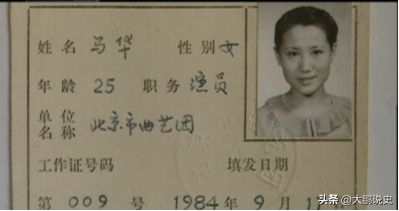 姓名 马华 性别 女
年龄 25 职务 演员
单位名称 北京市曲艺团
工作证号码 填发日期
第 009 号 1984年9月1
头条 @大鹏说史